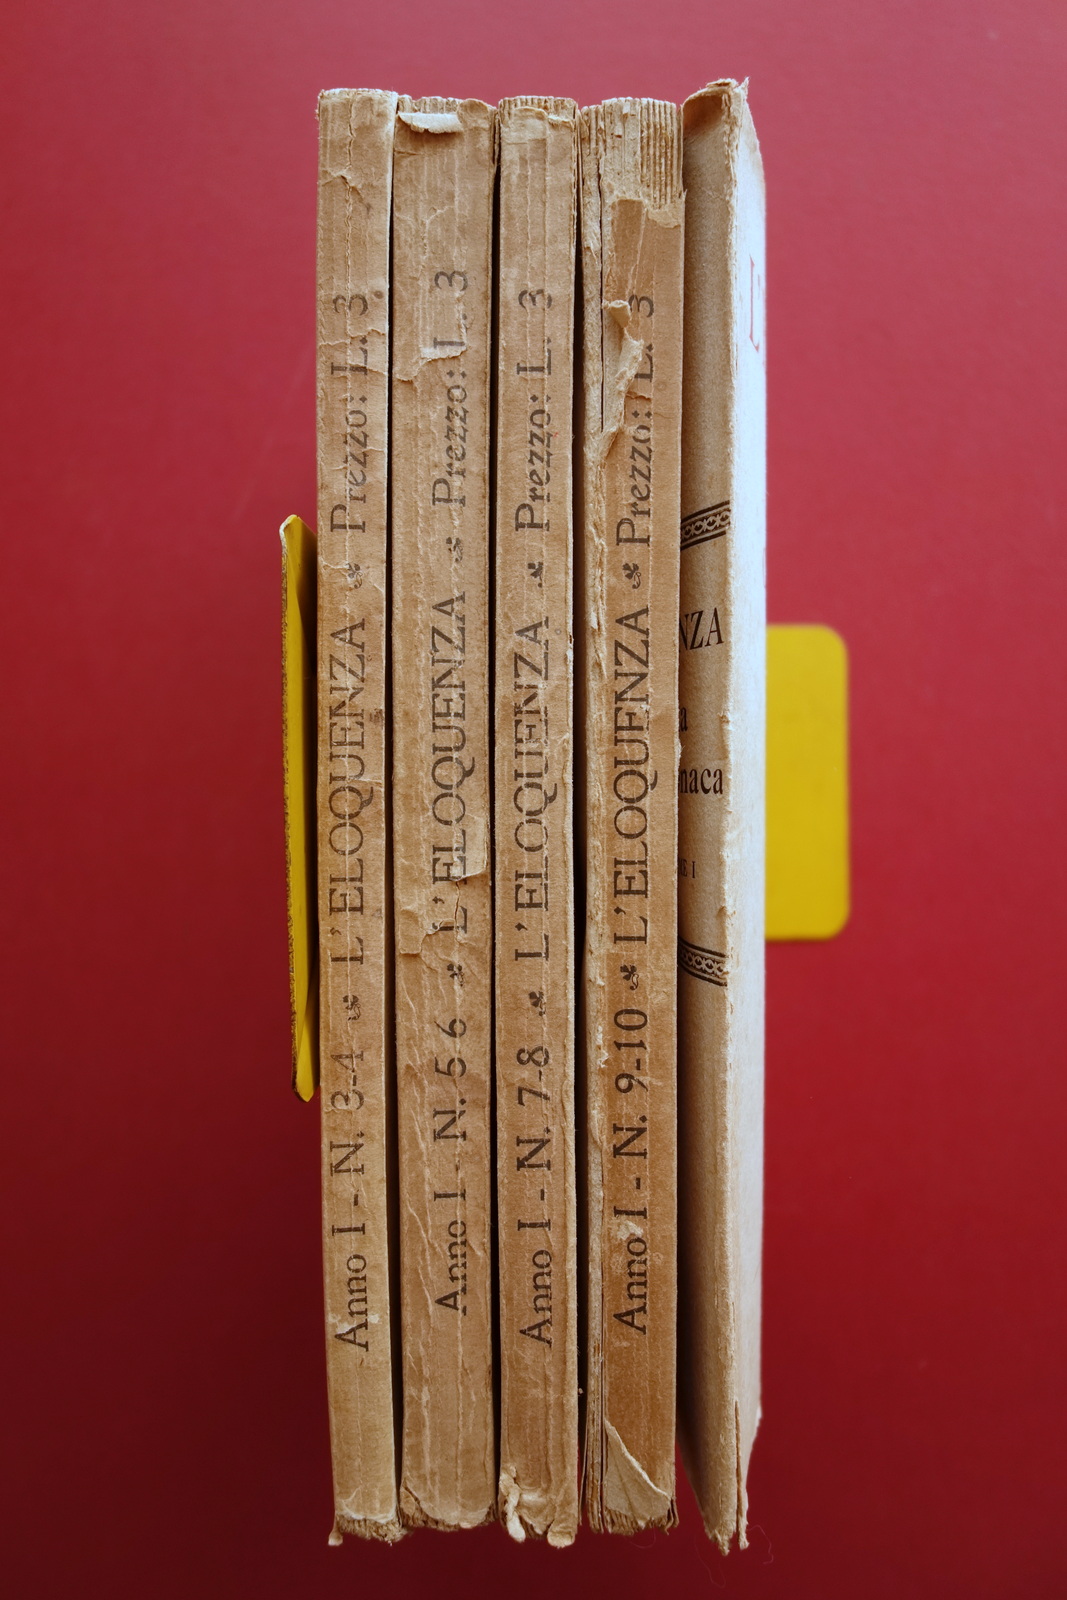 Anno I - N. 3-4 ☙ L'ELOQUENZA ☙ Prezzo: L. 3
Anno I - N. 5 6 ☙ L'ELOQUENZA ☙ Prezzo: L. 3
Anno I - N. 7-8 ☙ L'ELOQUENZA ☙ Prezzo: L. 3
Anno I - N. 9-10 ☙ L'ELOQUENZA ☙ Prezzo: L. 3
NZA
naca
I
L'